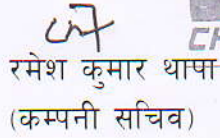 रमेश कुमार थापा
(कम्पनी सचिव)